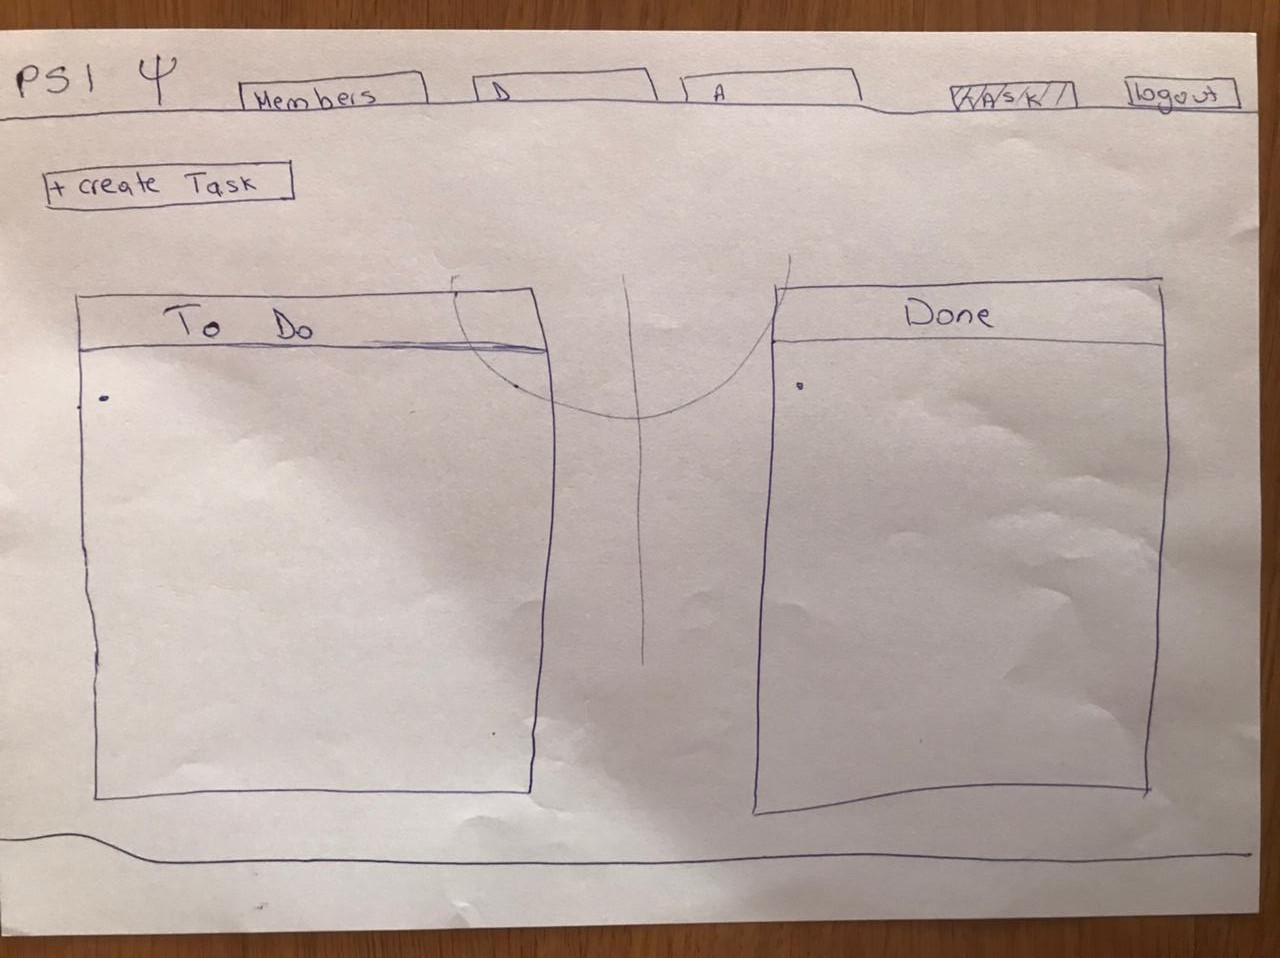 PSI Ψ
Members
D
A
TASK
logout
+ create Task
To Do
Done